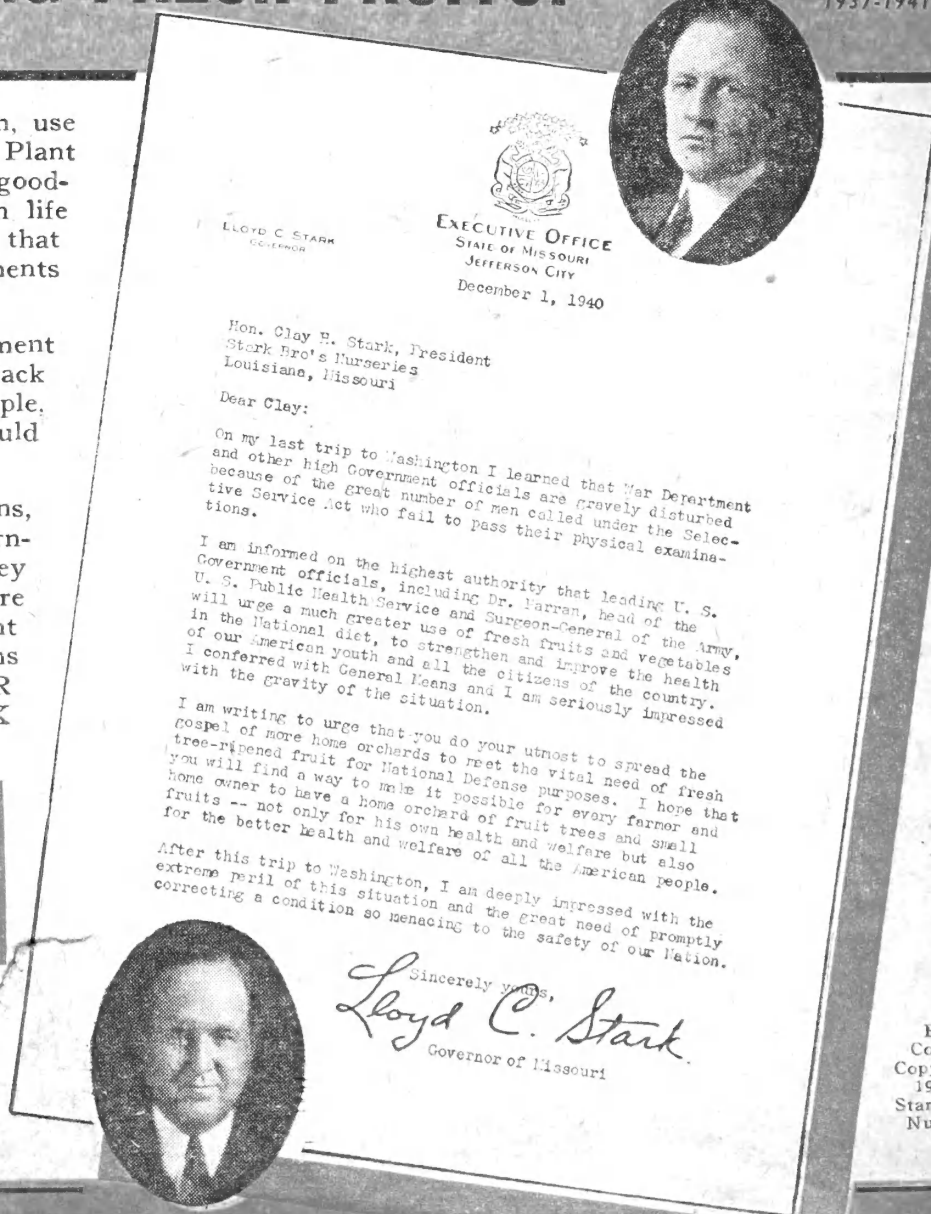 AND FRESH FRUITS!
1937-1941
n, use
Plant
good-
n life
that
ments
ment
ack
ple.
uld
ns,
rn-
ey
re
nt
ns
R
K
LLOYD C STARK
GOVERNOR
EXECUTIVE OFFICE
STATE OF MISSOURI
JEFFERSON CITY
December 1, 1940
Hon. Clay H. Stark, President
Stark Bro's Nurseries
Louisiana, Missouri
Dear Clay:
On my last trip to Washington I learned that War Department
and other high Government officials are gravely disturbed
because of the great number of men called under the Selec-
tive Service Act who fail to pass their physical examina-
tions.
I am informed on the highest authority that leading U. S.
Government officials, including Dr. Parran, head of the
U. S. Public Health Service and Surgeon-General of the Army,
will urge a much greater use of fresh fruits and vegetables
in the National diet, to strengthen and improve the health
of our American youth and all the citizens of the country.
I conferred with General Means and I am seriously impressed
with the gravity of the situation.
I am writing to urge that you do your utmost to spread the
gospel of more home orchards to meet the vital need of fresh
tree-ripened fruit for National Defense purposes. I hope that
you will find a way to make it possible for every farmer and
home owner to have a home orchard of fruit trees and small
fruits -- not only for his own health and welfare but also
for the better health and welfare of all the American people.
After this trip to Washington, I am deeply impressed with the
extreme peril of this situation and the great need of promptly
correcting a condition so menacing to the safety of our Nation.
Sincerely yours,
Lloyd C. Stark.
Governor of Missouri
Co
Cop
19
Star
Nu